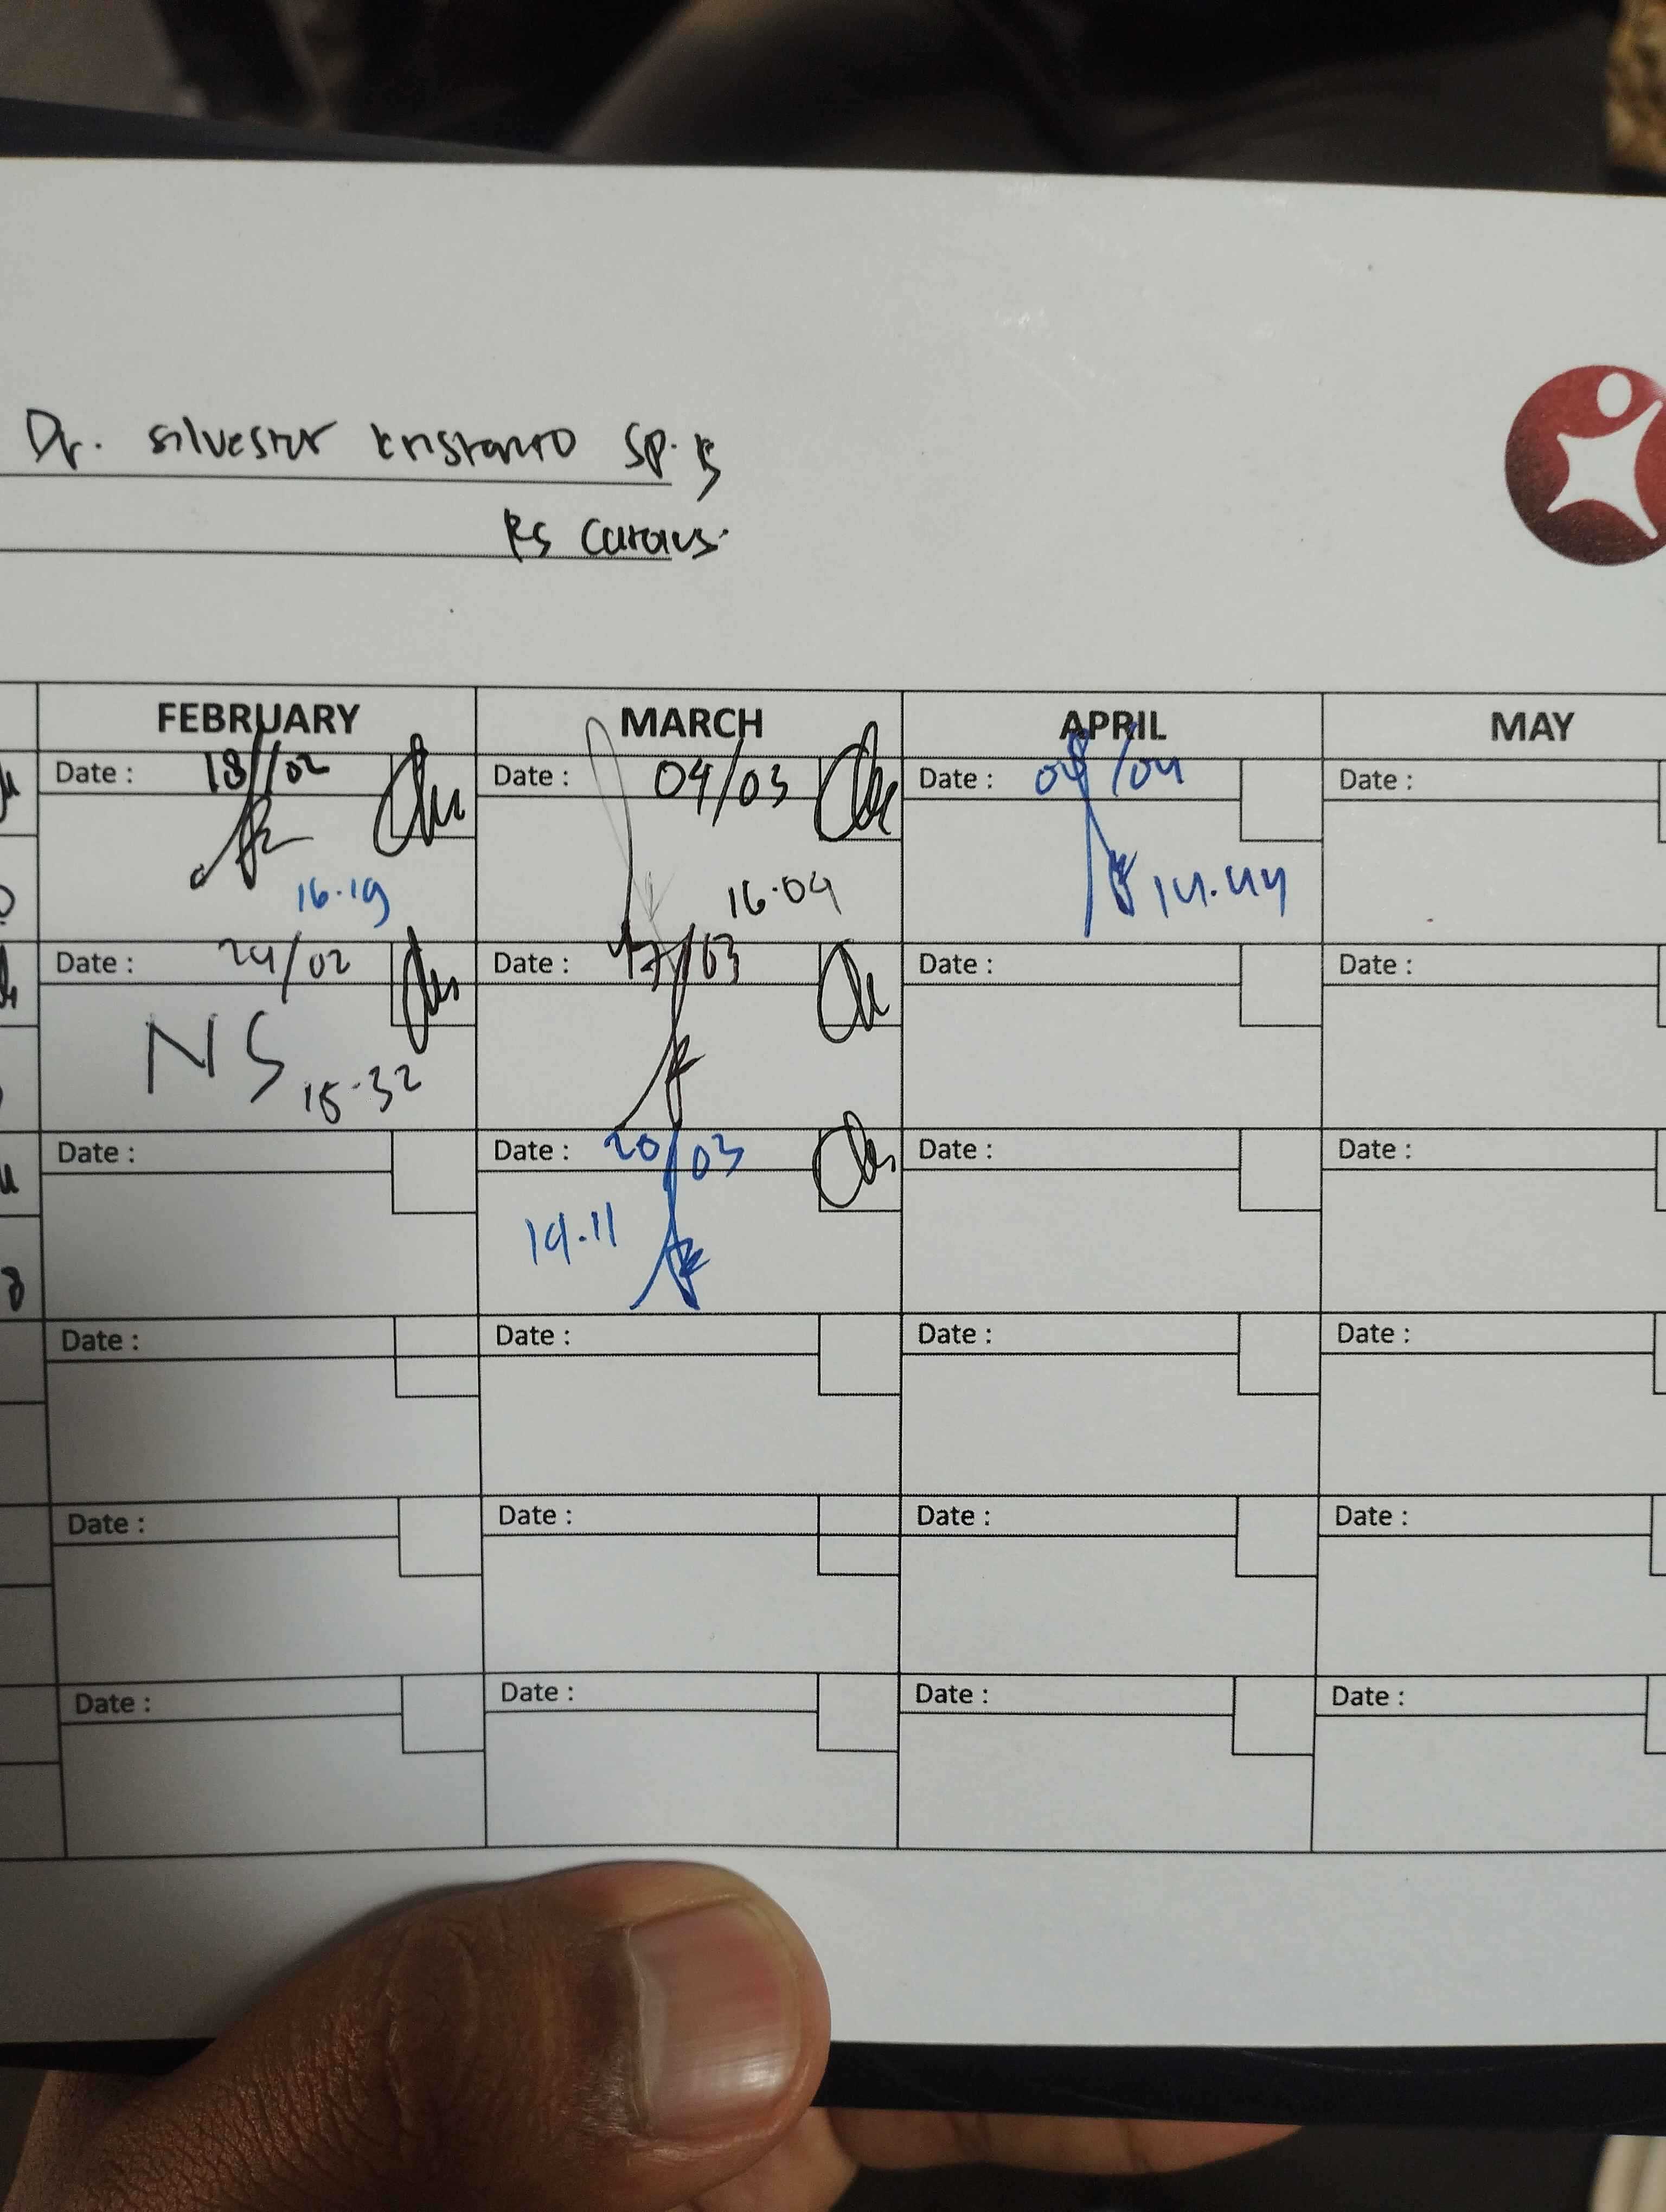 Dr. silvester kristanto SP. B
RS Carolus.
FEBRUARY MARCH APRIL MAY
Date : 18/02 Date : 04/03 Date : 04/04 Date :
16.19 16.04 14.44
Date : 24/02 Date : 17/03 Date : Date :
NS 15.32
Date : Date : 20/03 Date : Date :
19.11
Date : Date : Date : Date :
Date : Date : Date : Date :
Date : Date : Date : Date :